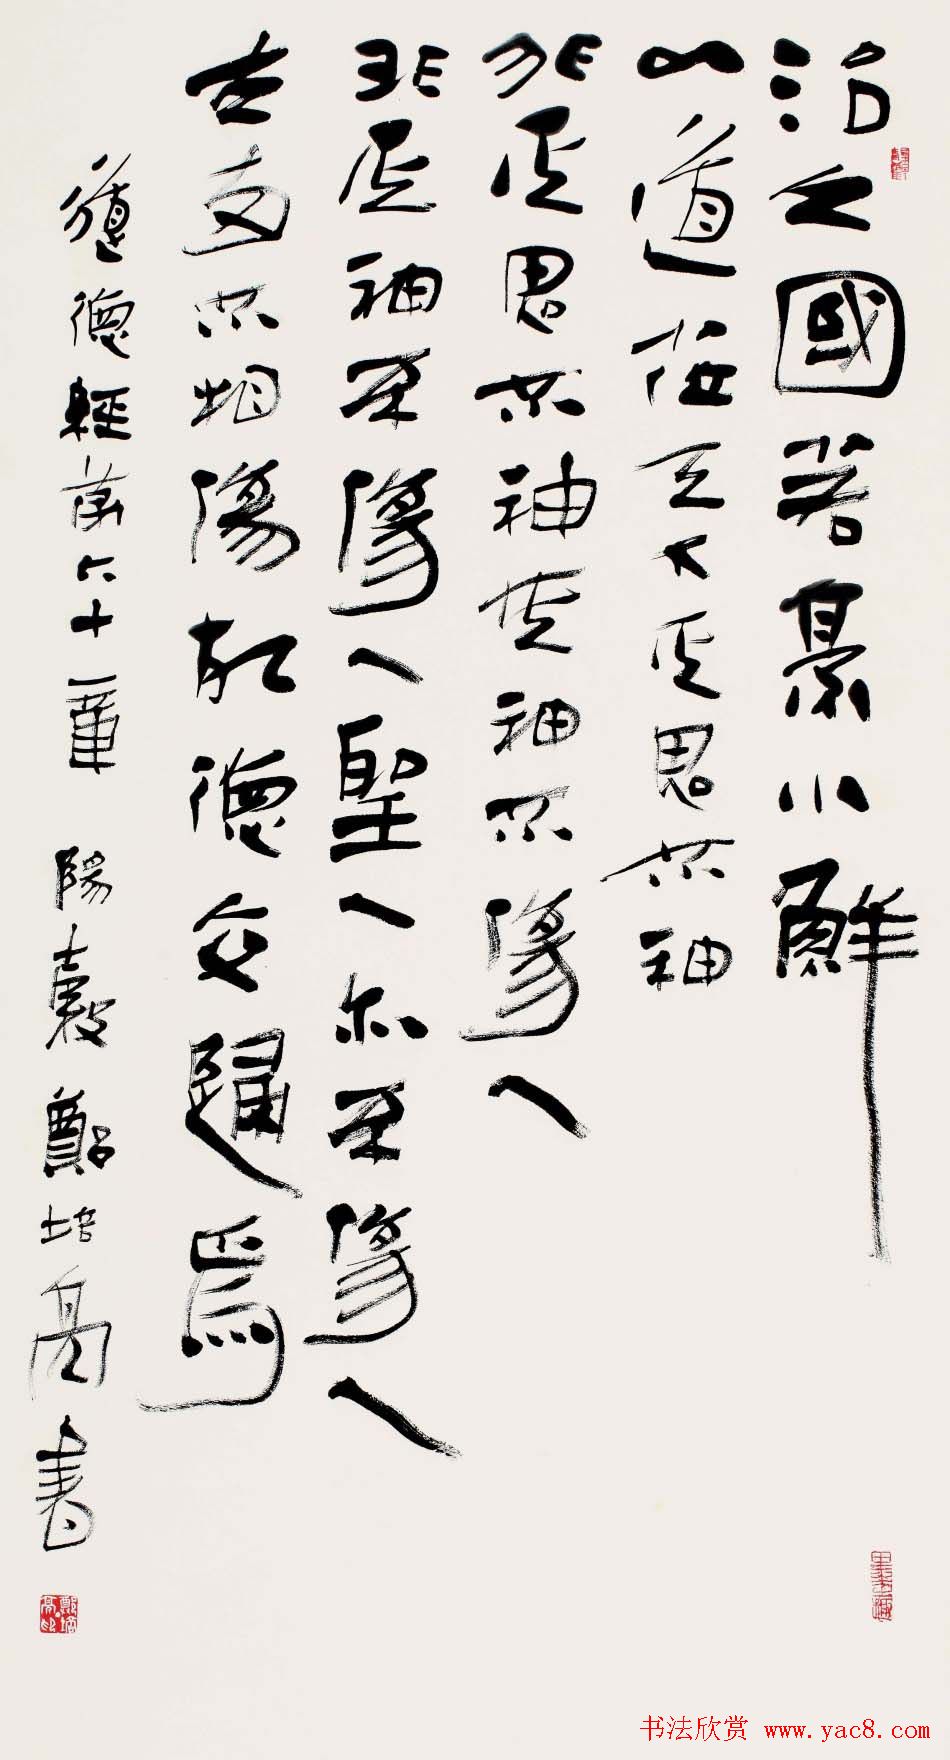 治大國若烹小鮮
以道莅天下其鬼不神
非其鬼不神其神不傷人
非其神不傷人聖人亦不傷人
夫兩不相傷故德交歸焉
道德經第六十章 陽穀鄭培亮書
鄭培亮印
书法欣赏 www.yac8.com